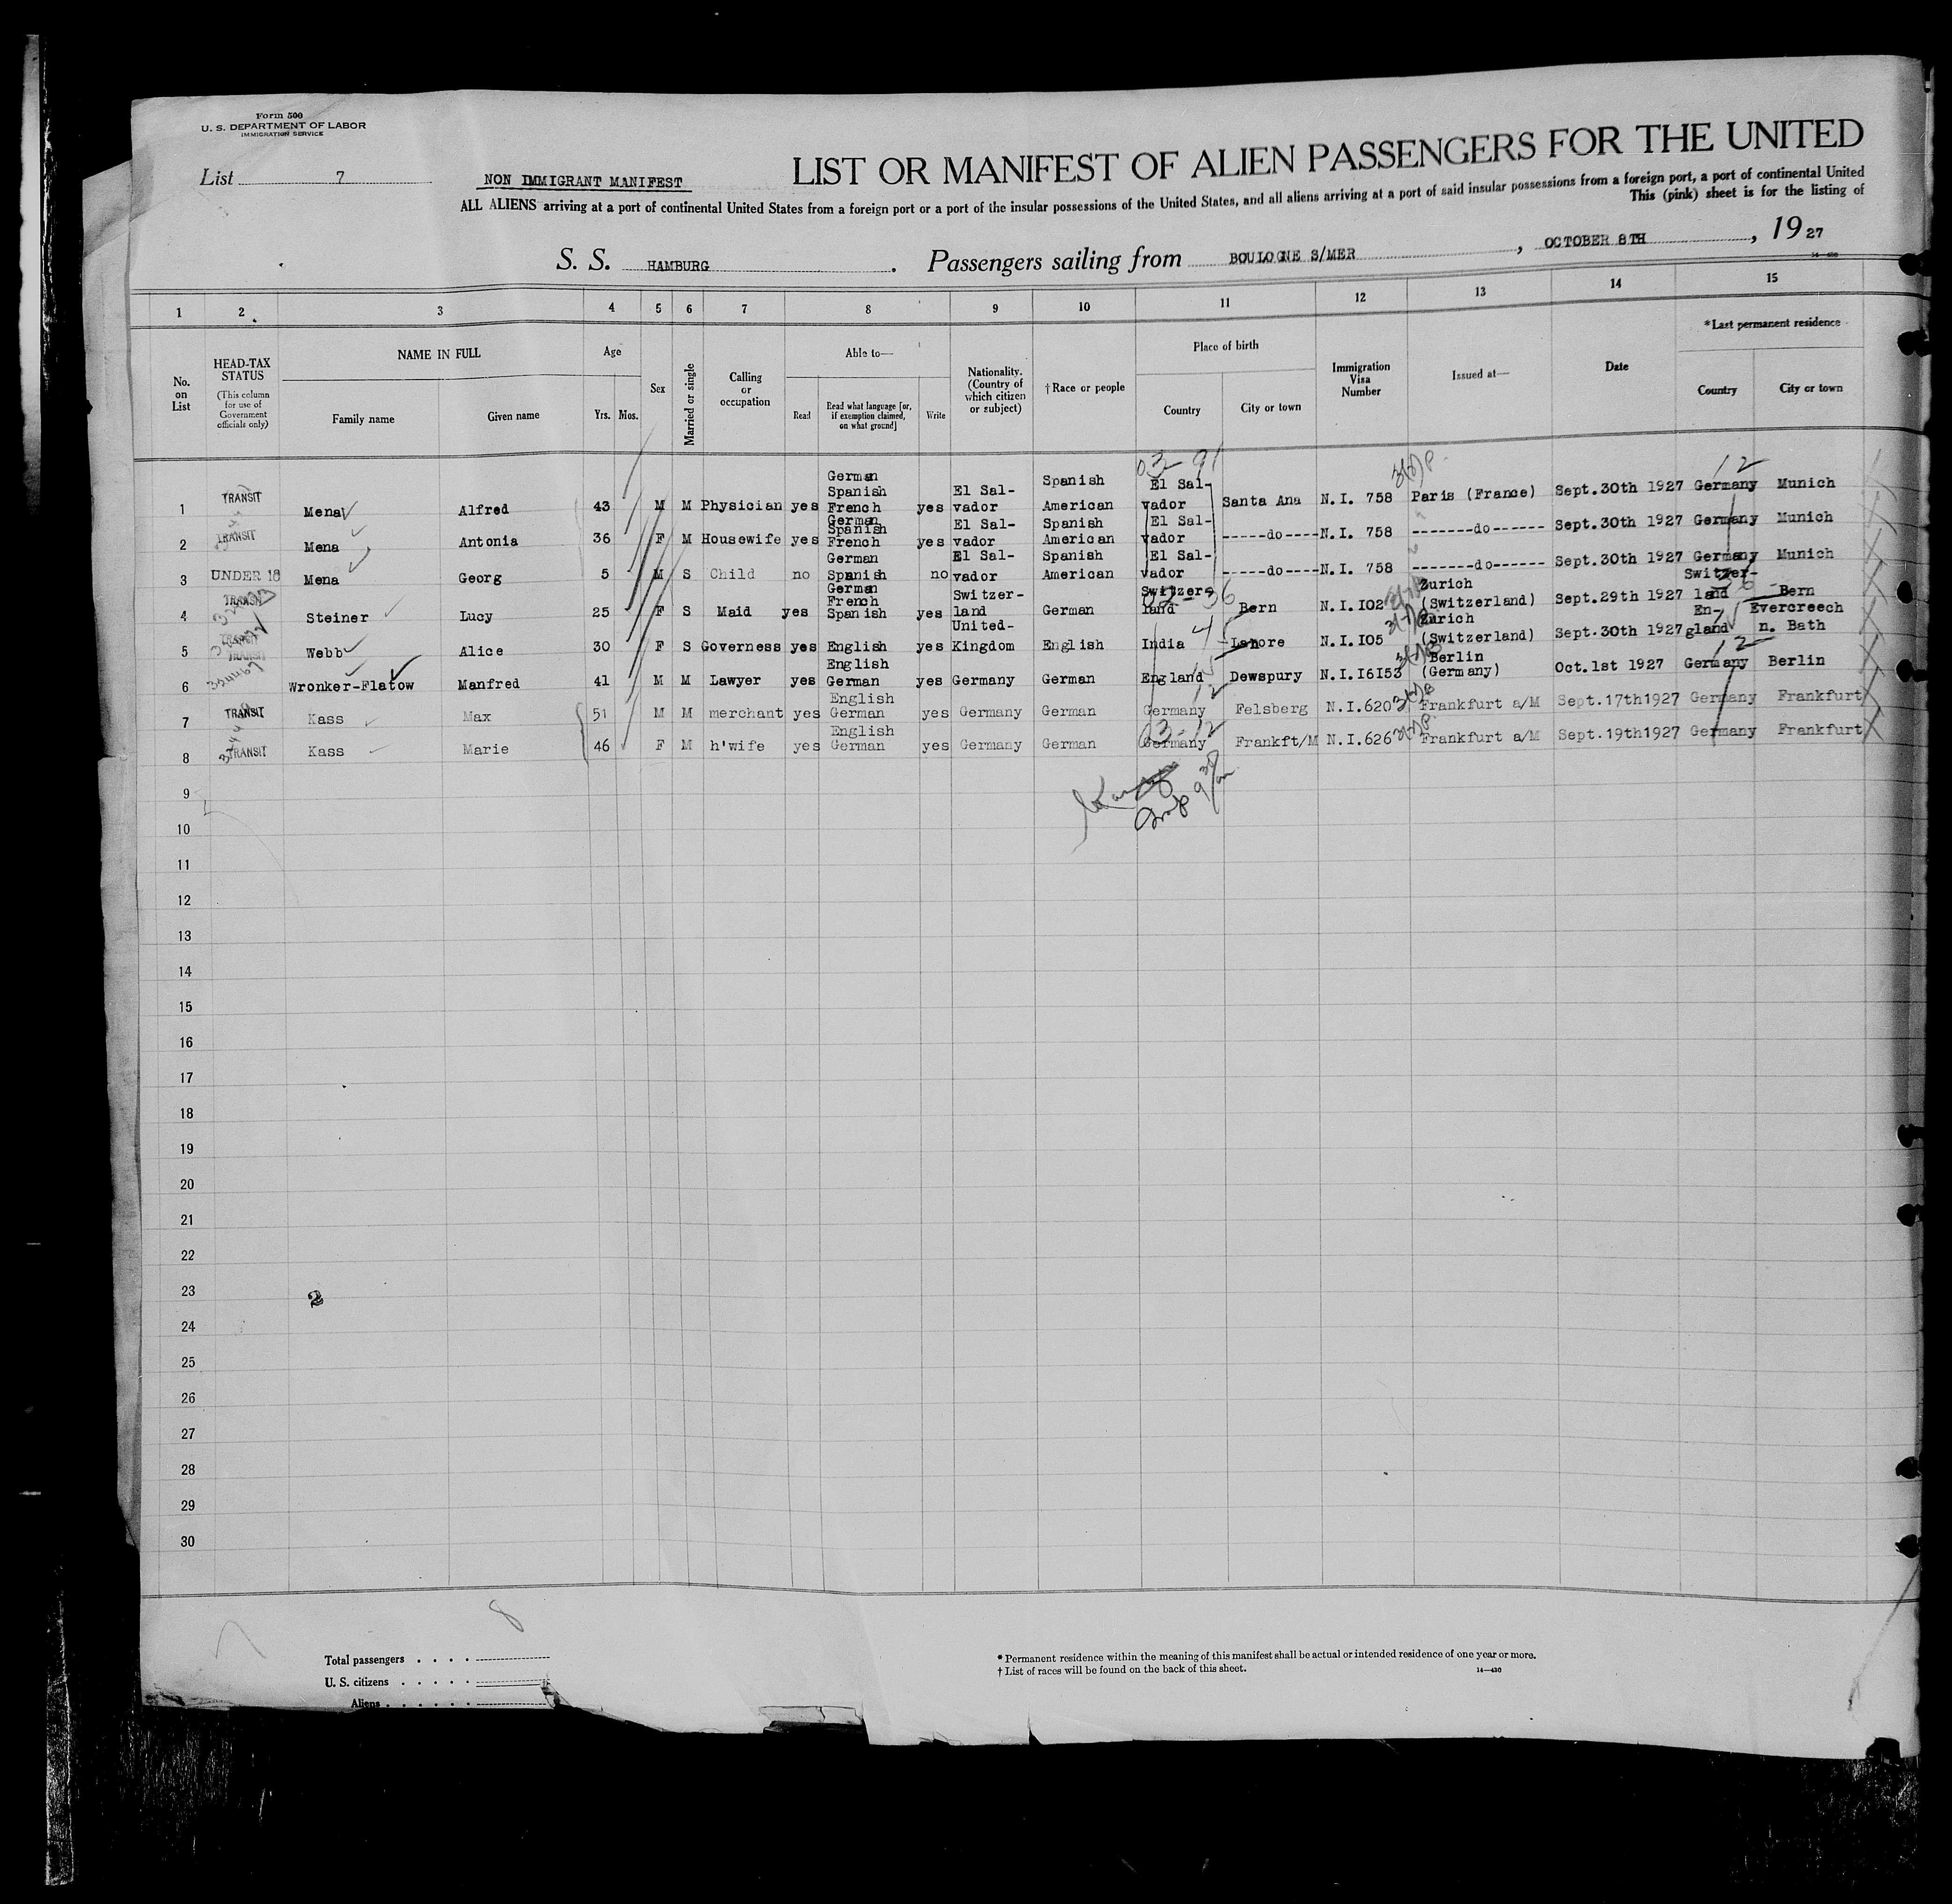 Form 500
U. S. DEPARTMENT OF LABOR
IMMIGRATION SERVICE
List 7
NON IMMIGRANT MANIFEST
LIST OR MANIFEST OF ALIEN PASSENGERS FOR THE UNITED
ALL ALIENS arriving at a port of continental United States from a foreign port or a port of the insular possessions of the United States, and all aliens arriving at a port of said insular possessions from a foreign port, a port of continental United
This (pink) sheet is for the listing of
S. S. HAMBURG. Passengers sailing from BOULOGNE S/MER, OCTOBER 8TH, 19 27
14—430
1 2 3 4 5 6 7 8 9 10 11 12 13 14 15
No. on List
HEAD-TAX STATUS
(This column for use of Government officials only)
NAME IN FULL
Family name Given name
Age
Yrs. Mos.
Sex
Married or single
Calling or occupation
Able to—
Read
Read what language [or, if exemption claimed, on what ground]
Write
Nationality. (Country of which citizen or subject)
†Race or people
Place of birth
Country City or town
Immigration Visa Number
Issued at—
Date
*Last permanent residence
Country City or town
03-91
12
1 TRANSIT Mena Alfred 43 M M Physician yes German Spanish French yes El Sal-vador Spanish American El Sal-vador Santa Ana N.I. 758 Paris (France) Sept.30th 1927 Germany Munich
2 TRANSIT Mena Antonia 36 F M Housewife yes German Spanish French yes El Sal-vador Spanish American El Sal-vador -----do---- N.I. 758 -------do------ Sept.30th 1927 Germany Munich
3 UNDER 16 Mena Georg 5 M S Child no German Spanish no El Sal-vador Spanish American El Sal-vador -----do---- N.I. 758 -------do------ Sept.30th 1927 Germany Munich
4 TRANSIT Steiner Lucy 25 F S Maid yes German French Spanish yes Switzer-land German Switzer-land Bern N.I. I02 Zurich (Switzerland) Sept.29th 1927 Switzer-land Bern
5 TRANSIT Webb Alice 30 F S Governess yes English yes United-Kingdom English India Lahore N.I. I05 Zurich (Switzerland) Sept.30th 1927 En-gland Evercreech n. Bath
6 TRANSIT Wronker-Flatow Manfred 41 M M Lawyer yes English German yes Germany German England Dewspury N.I.I6I53 Berlin (Germany) Oct.1st 1927 Germany Berlin
7 TRANSIT Kass Max 51 M M merchant yes English German yes Germany German Germany Felsberg N.I.620 Frankfurt a/M Sept.17th1927 Germany Frankfurt
8 TRANSIT Kass Marie 46 F M h'wife yes English German yes Germany German Germany Frankft/M N.I.626 Frankfurt a/M Sept.19th1927 Germany Frankfurt
9
10
11
12
13
14
15
16
17
18
19
20
21
22
23
2
24
25
26
27
28
29
30
7
8
Total passengers
U. S. citizens
Aliens
* Permanent residence within the meaning of this manifest shall be actual or intended residence of one year or more.
† List of races will be found on the back of this sheet.
14—430